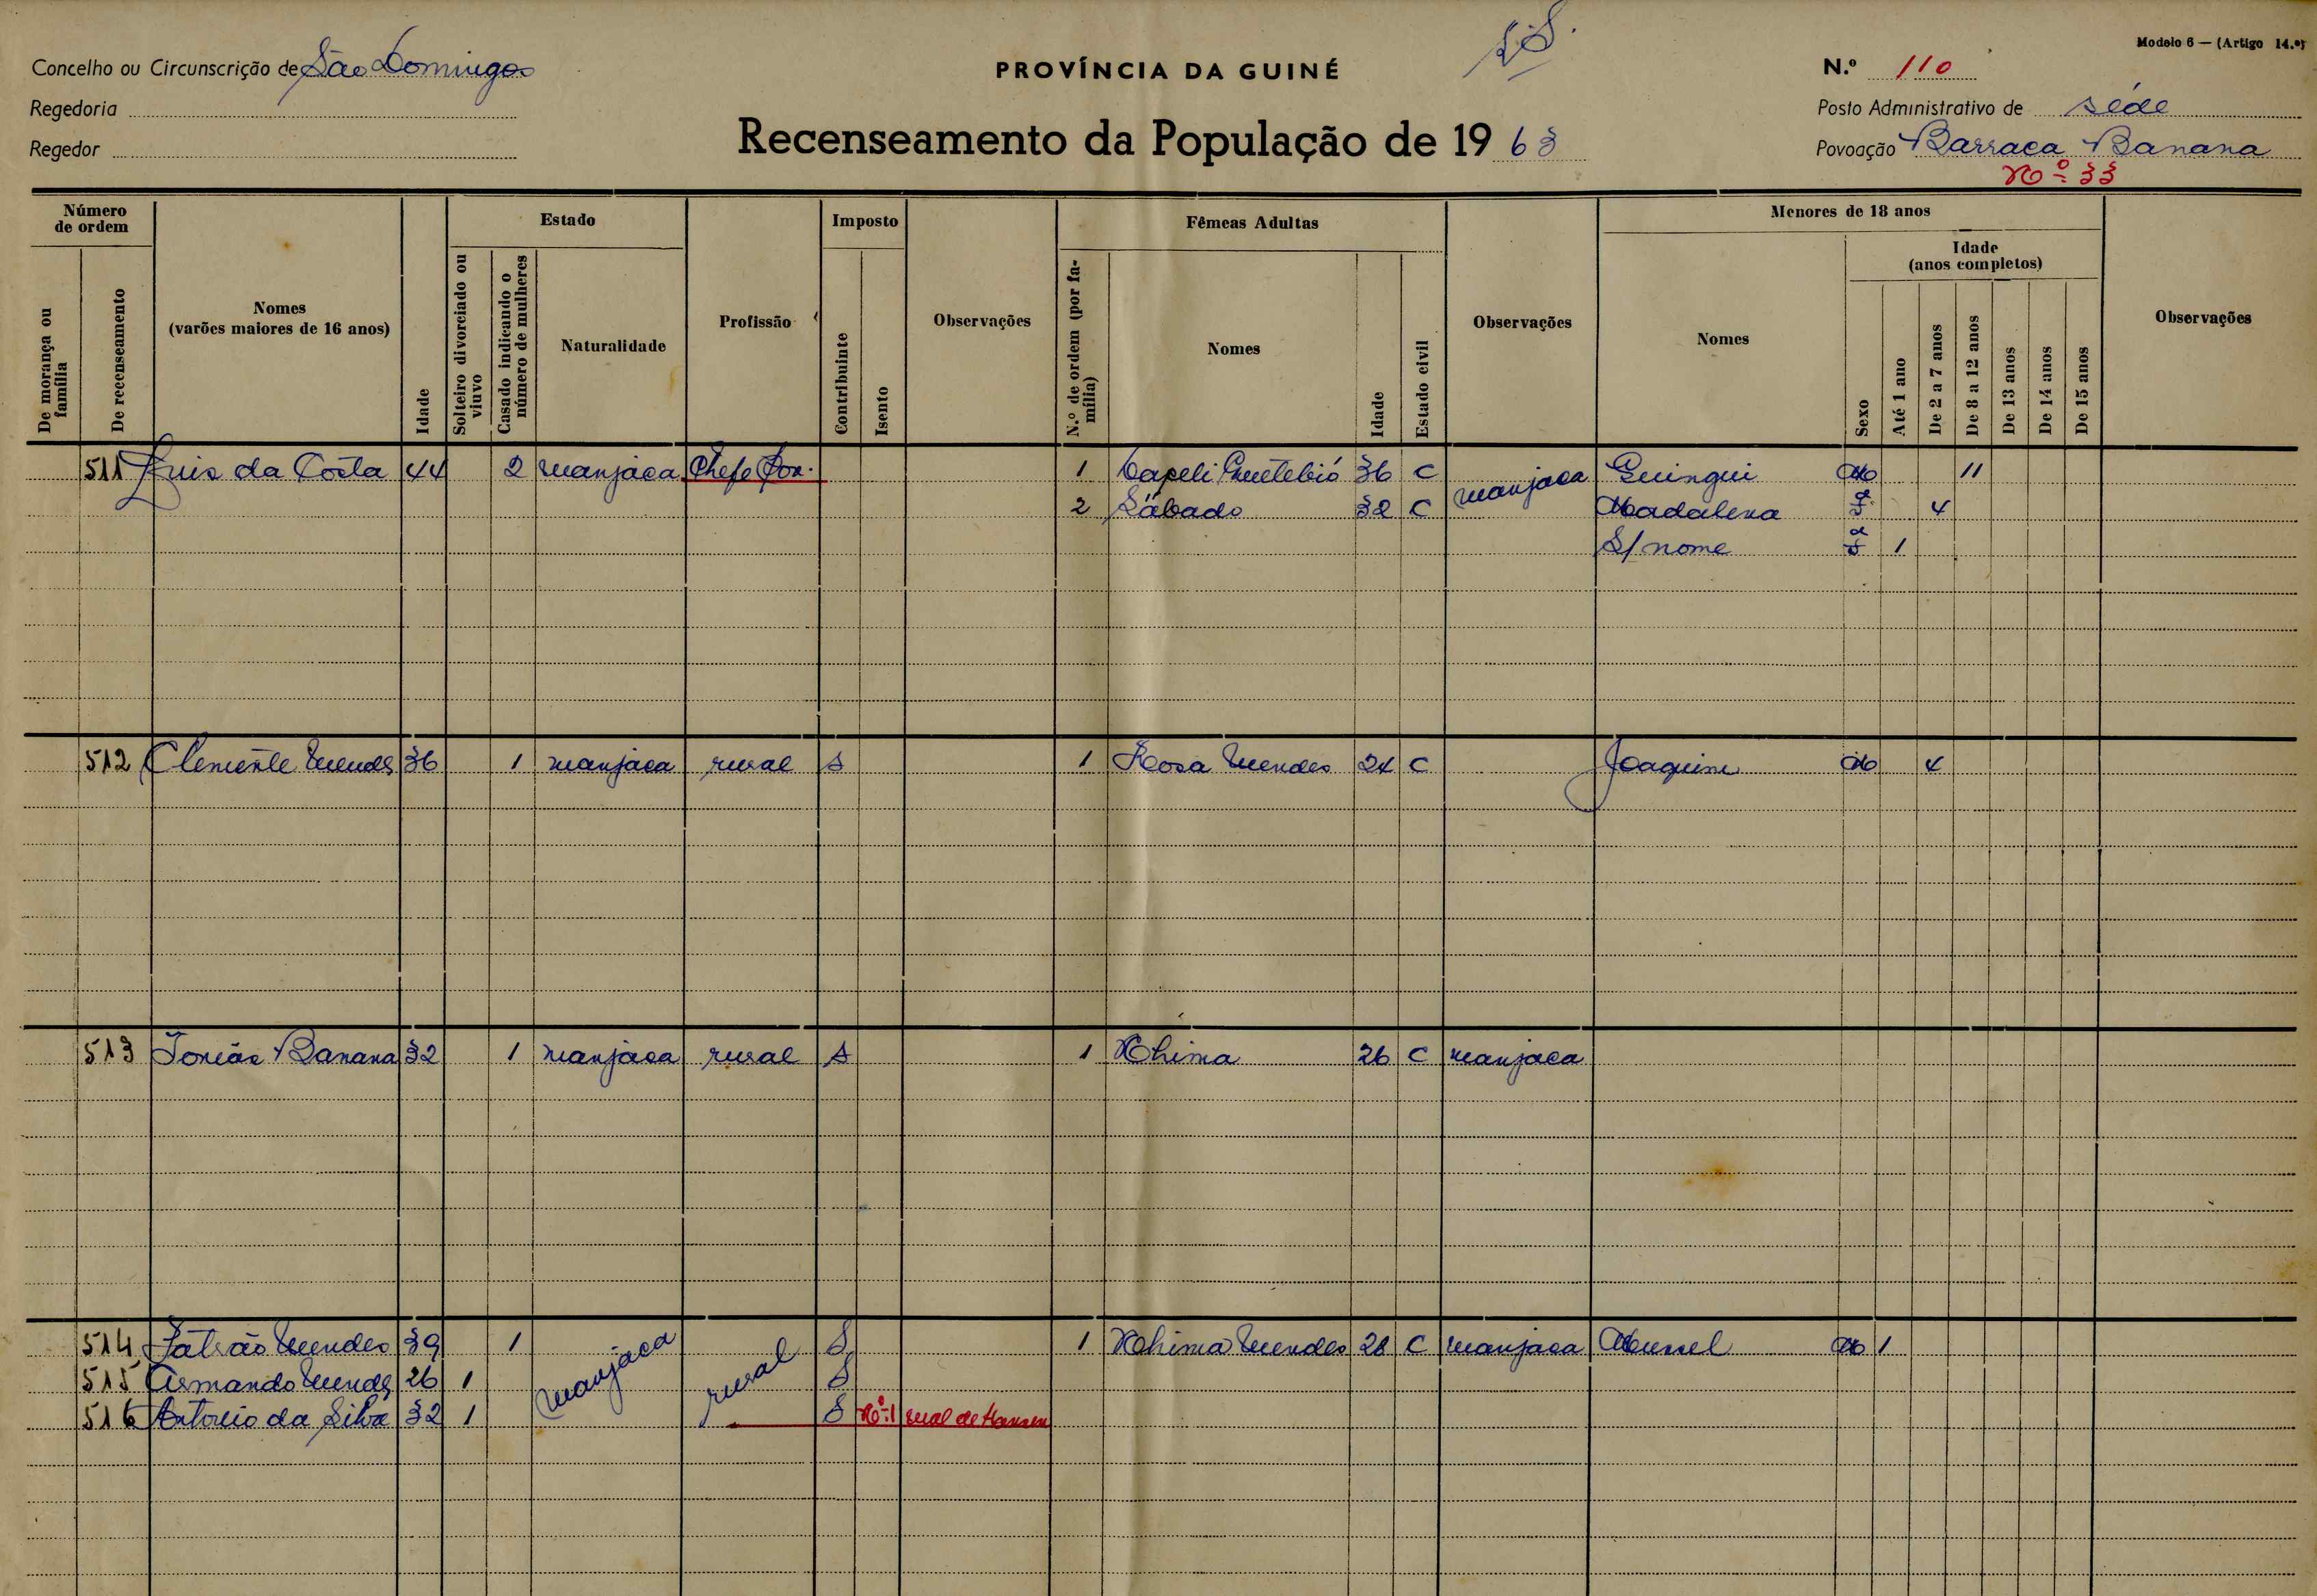 Modelo 6 — (Artigo 14.º)
Concelho ou Circunscrição de São Domingos
PROVÍNCIA DA GUINÉ
N.º 110
Regedoria
Posto Administrativo de séde
Regedor
Recenseamento da População de 1963
Povoação Barraca Banana
Nº 33
Número de ordem
Estado
Imposto
Fêmeas Adultas
Menores de 18 anos
Idade (anos completos)
De morança ou família
De recenseamento
Nomes (varões maiores de 16 anos)
Idade
Solteiro divorciado ou viuvo
Casado indicando o número de mulheres
Naturalidade
Profissão
Contribuinte
Isento
Observações
N.º de ordem (por família)
Nomes
Idade
Estado civil
Observações
Nomes
Sexo
Até 1 ano
De 2 a 7 anos
De 8 a 12 anos
De 13 anos
De 14 anos
De 15 anos
Observações
511 Luis da Costa 44 2 manjaca Chefe Pov. 1 Capeli 36 C manjaca Guingui M 11
2 Sábado 32 C Madalena F 4
S/ nome F 1
512 Clemente Mendes 36 1 manjaca rural S 1 Rosa Mendes 24 C Joaquim M 4
513 Tomás Banana 32 1 manjaca rural S 1 Nhima 26 C manjaca
514 Mendes 39 1 manjaca rural S 1 Nhima Mendes 28 C manjaca Manel M 1
515 Armando Mendes 26 1 S
516 Antonio da Silva 32 1 S Nº 1 mal de Hansen